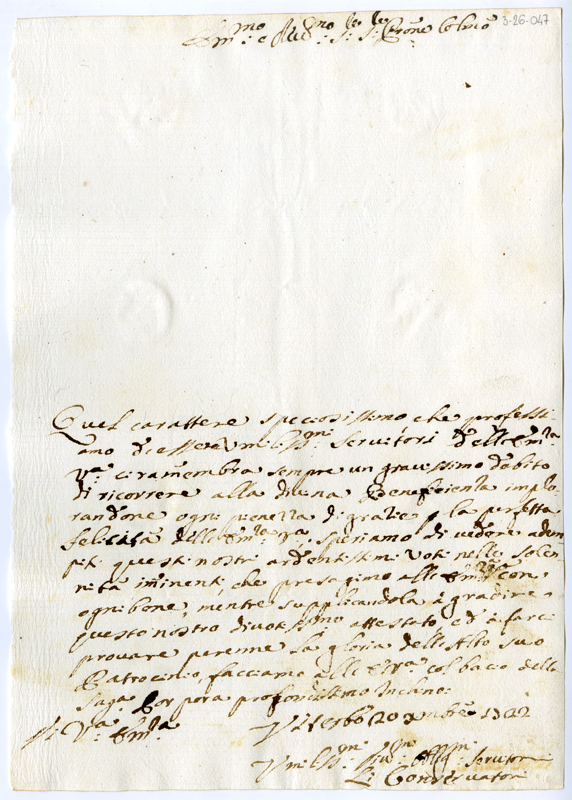 3-26-047
Em.mo e Rev.mo Sig.re Sig.re Prone Colmo
Quel carattere speciosissimo che professi=
amo d'essere umiliss.mi servitori dell'Em.za
V.ra ci ramembra sempre un gravissimo debito
di ricorrere alla divina Beneficienza implo
randone ogni pienezza di grazie, la perfetta
felicità dell'Em.za V.ra, speriamo di vedere adem
piti questi nostri ardentissimi voti nelle solen
nità iminenti, che presagimo all'Em.za V.ra con
ogni bene, mentre supplicandola à gradire
questo nostro divotissimo attestato, ed à farci
provare perenne la gloria dell'Alto suo
Patrocinio, facciamo all'E.V.ra col bacio della
Sag.a Porpora profondissimo Inchino:
Di V.ra Em.za Viterbo 20 Xmbre
Umiliss.mi Servitori
Li Conservatori